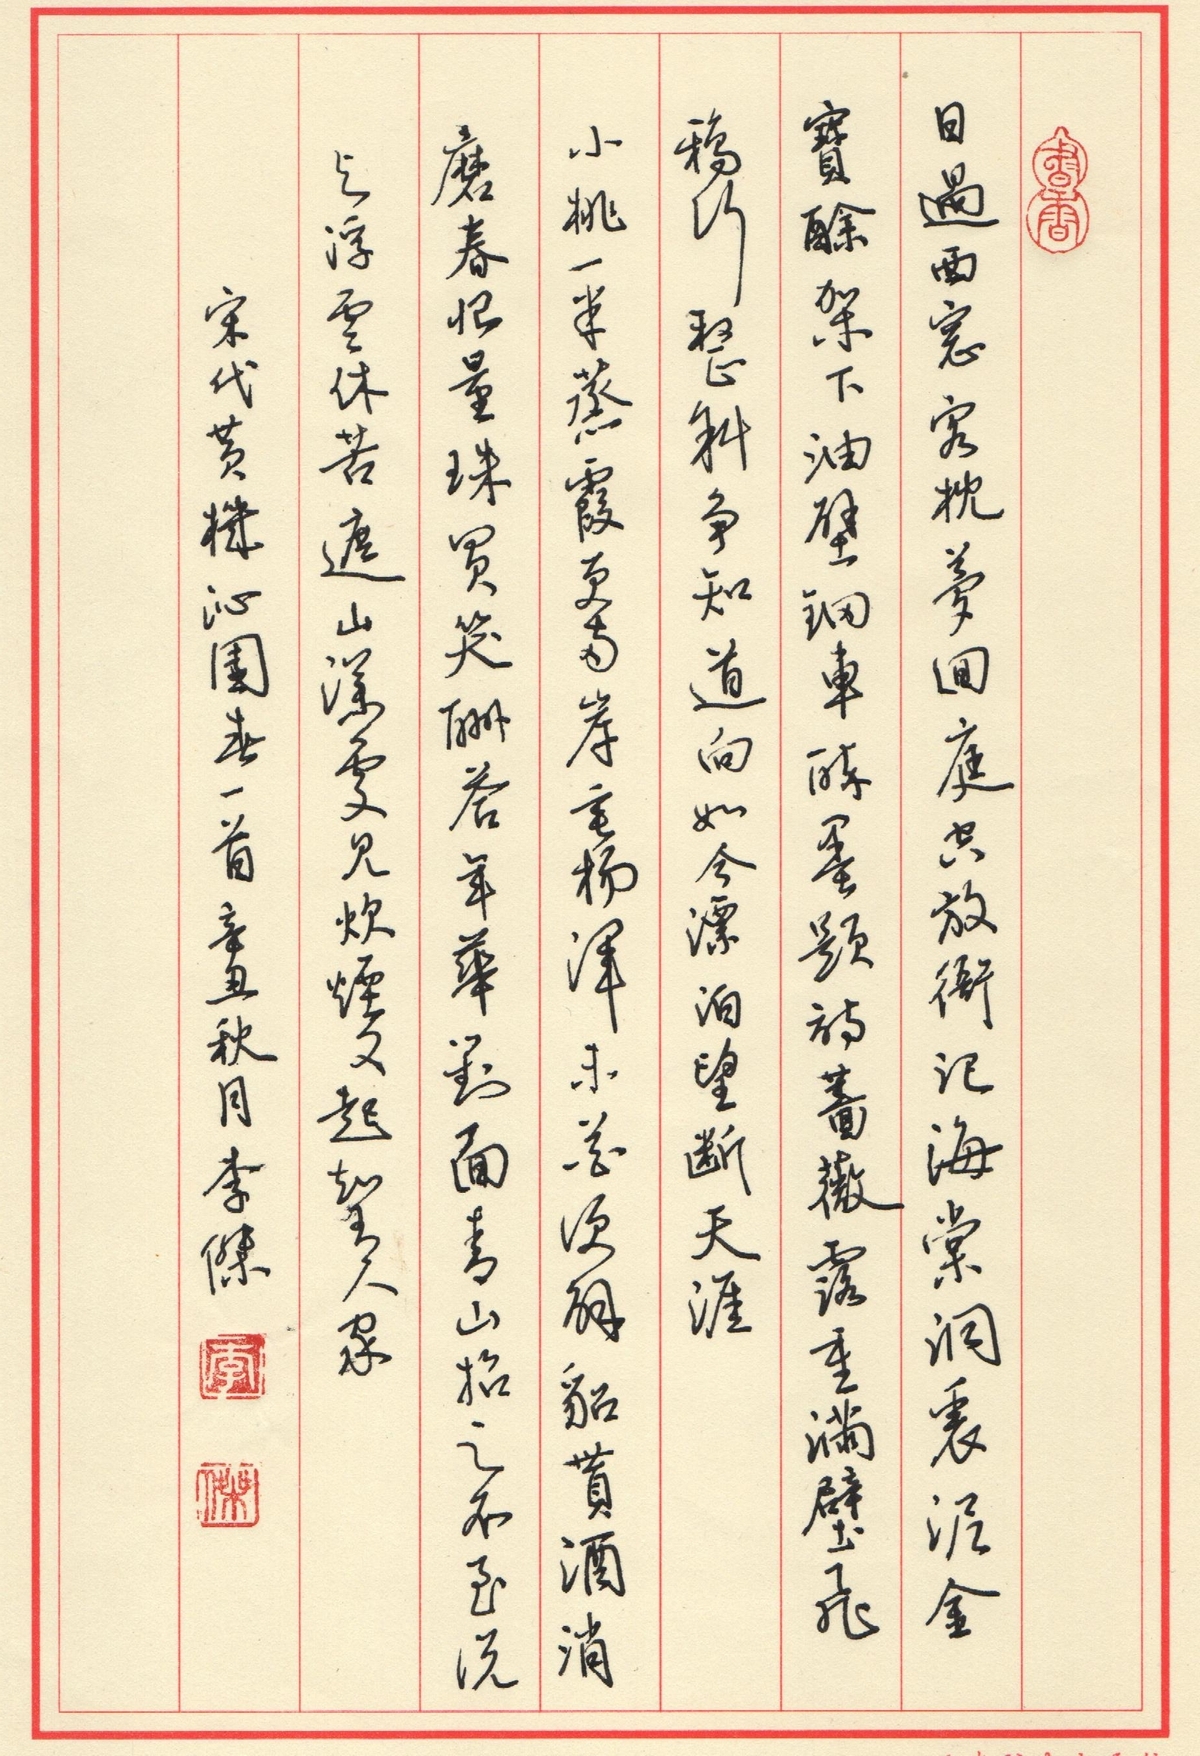 書香
日過西窓客枕夢回庭空放衙記海棠洞裏泥金
寶酴架下油壁鈿車醉墨題詩薔薇露重滿壁飛
鴉行整斜争知道向如今漂泊望斷天涯
小桃一半蒸霞更兩岸垂楊渾未花便解貂貰酒消
磨春恨量珠買笑酬荅年華對面青山招之不至说
与浮雲休苦遮山深處見炊煙又起知有人家
宋代黄機沁園春一首辛丑秋月李傑
李
傑